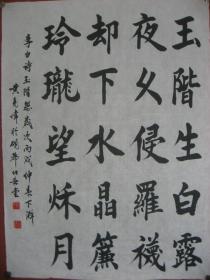 玉階生白露
夜久侵羅襪
却下水晶簾
玲瓏望秋月
李白诗玉階怨歲次丙戌仲春下浣